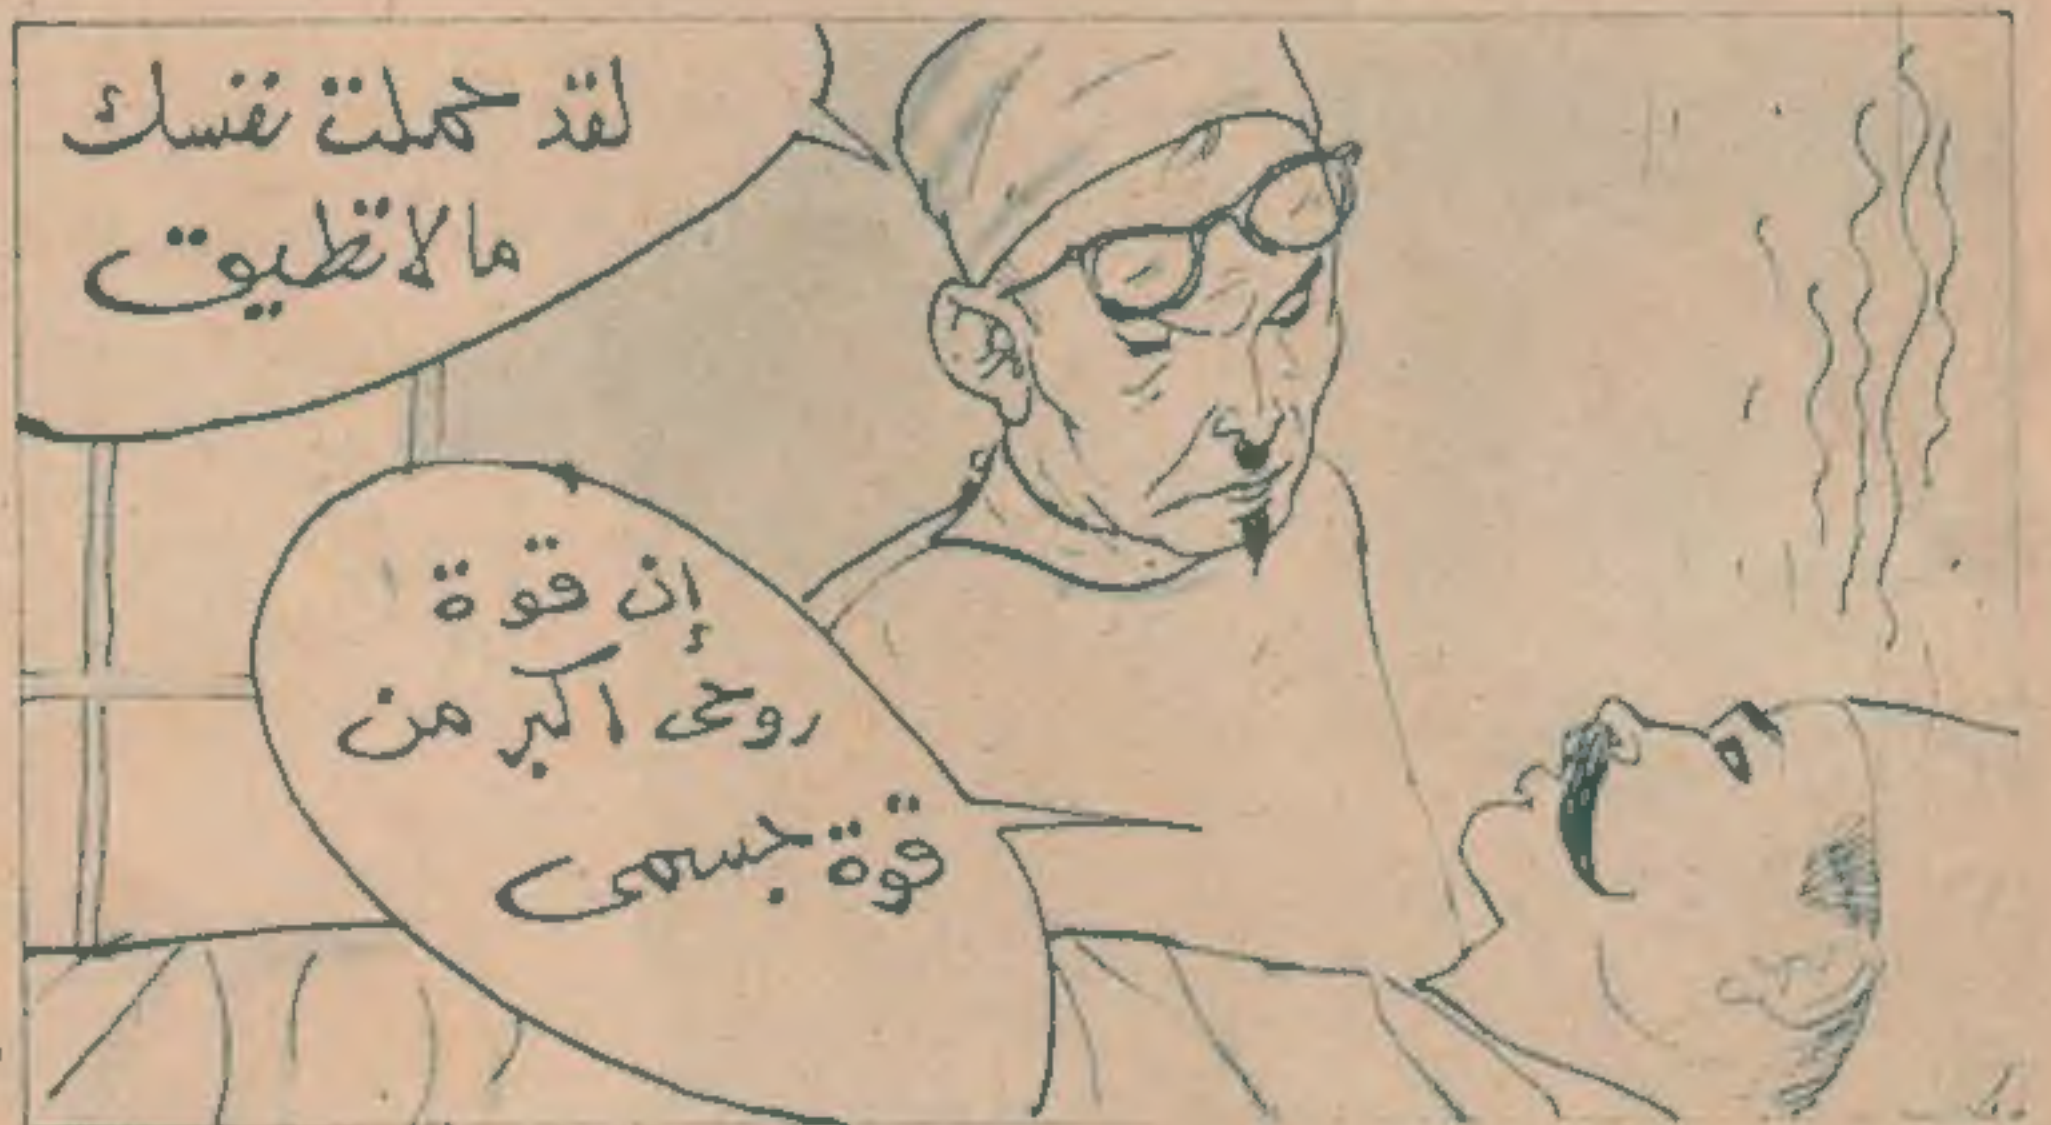 لقد حملت نفسك
مالا تطيق
إن قوة
روحى اكبر من
قوة جسمى